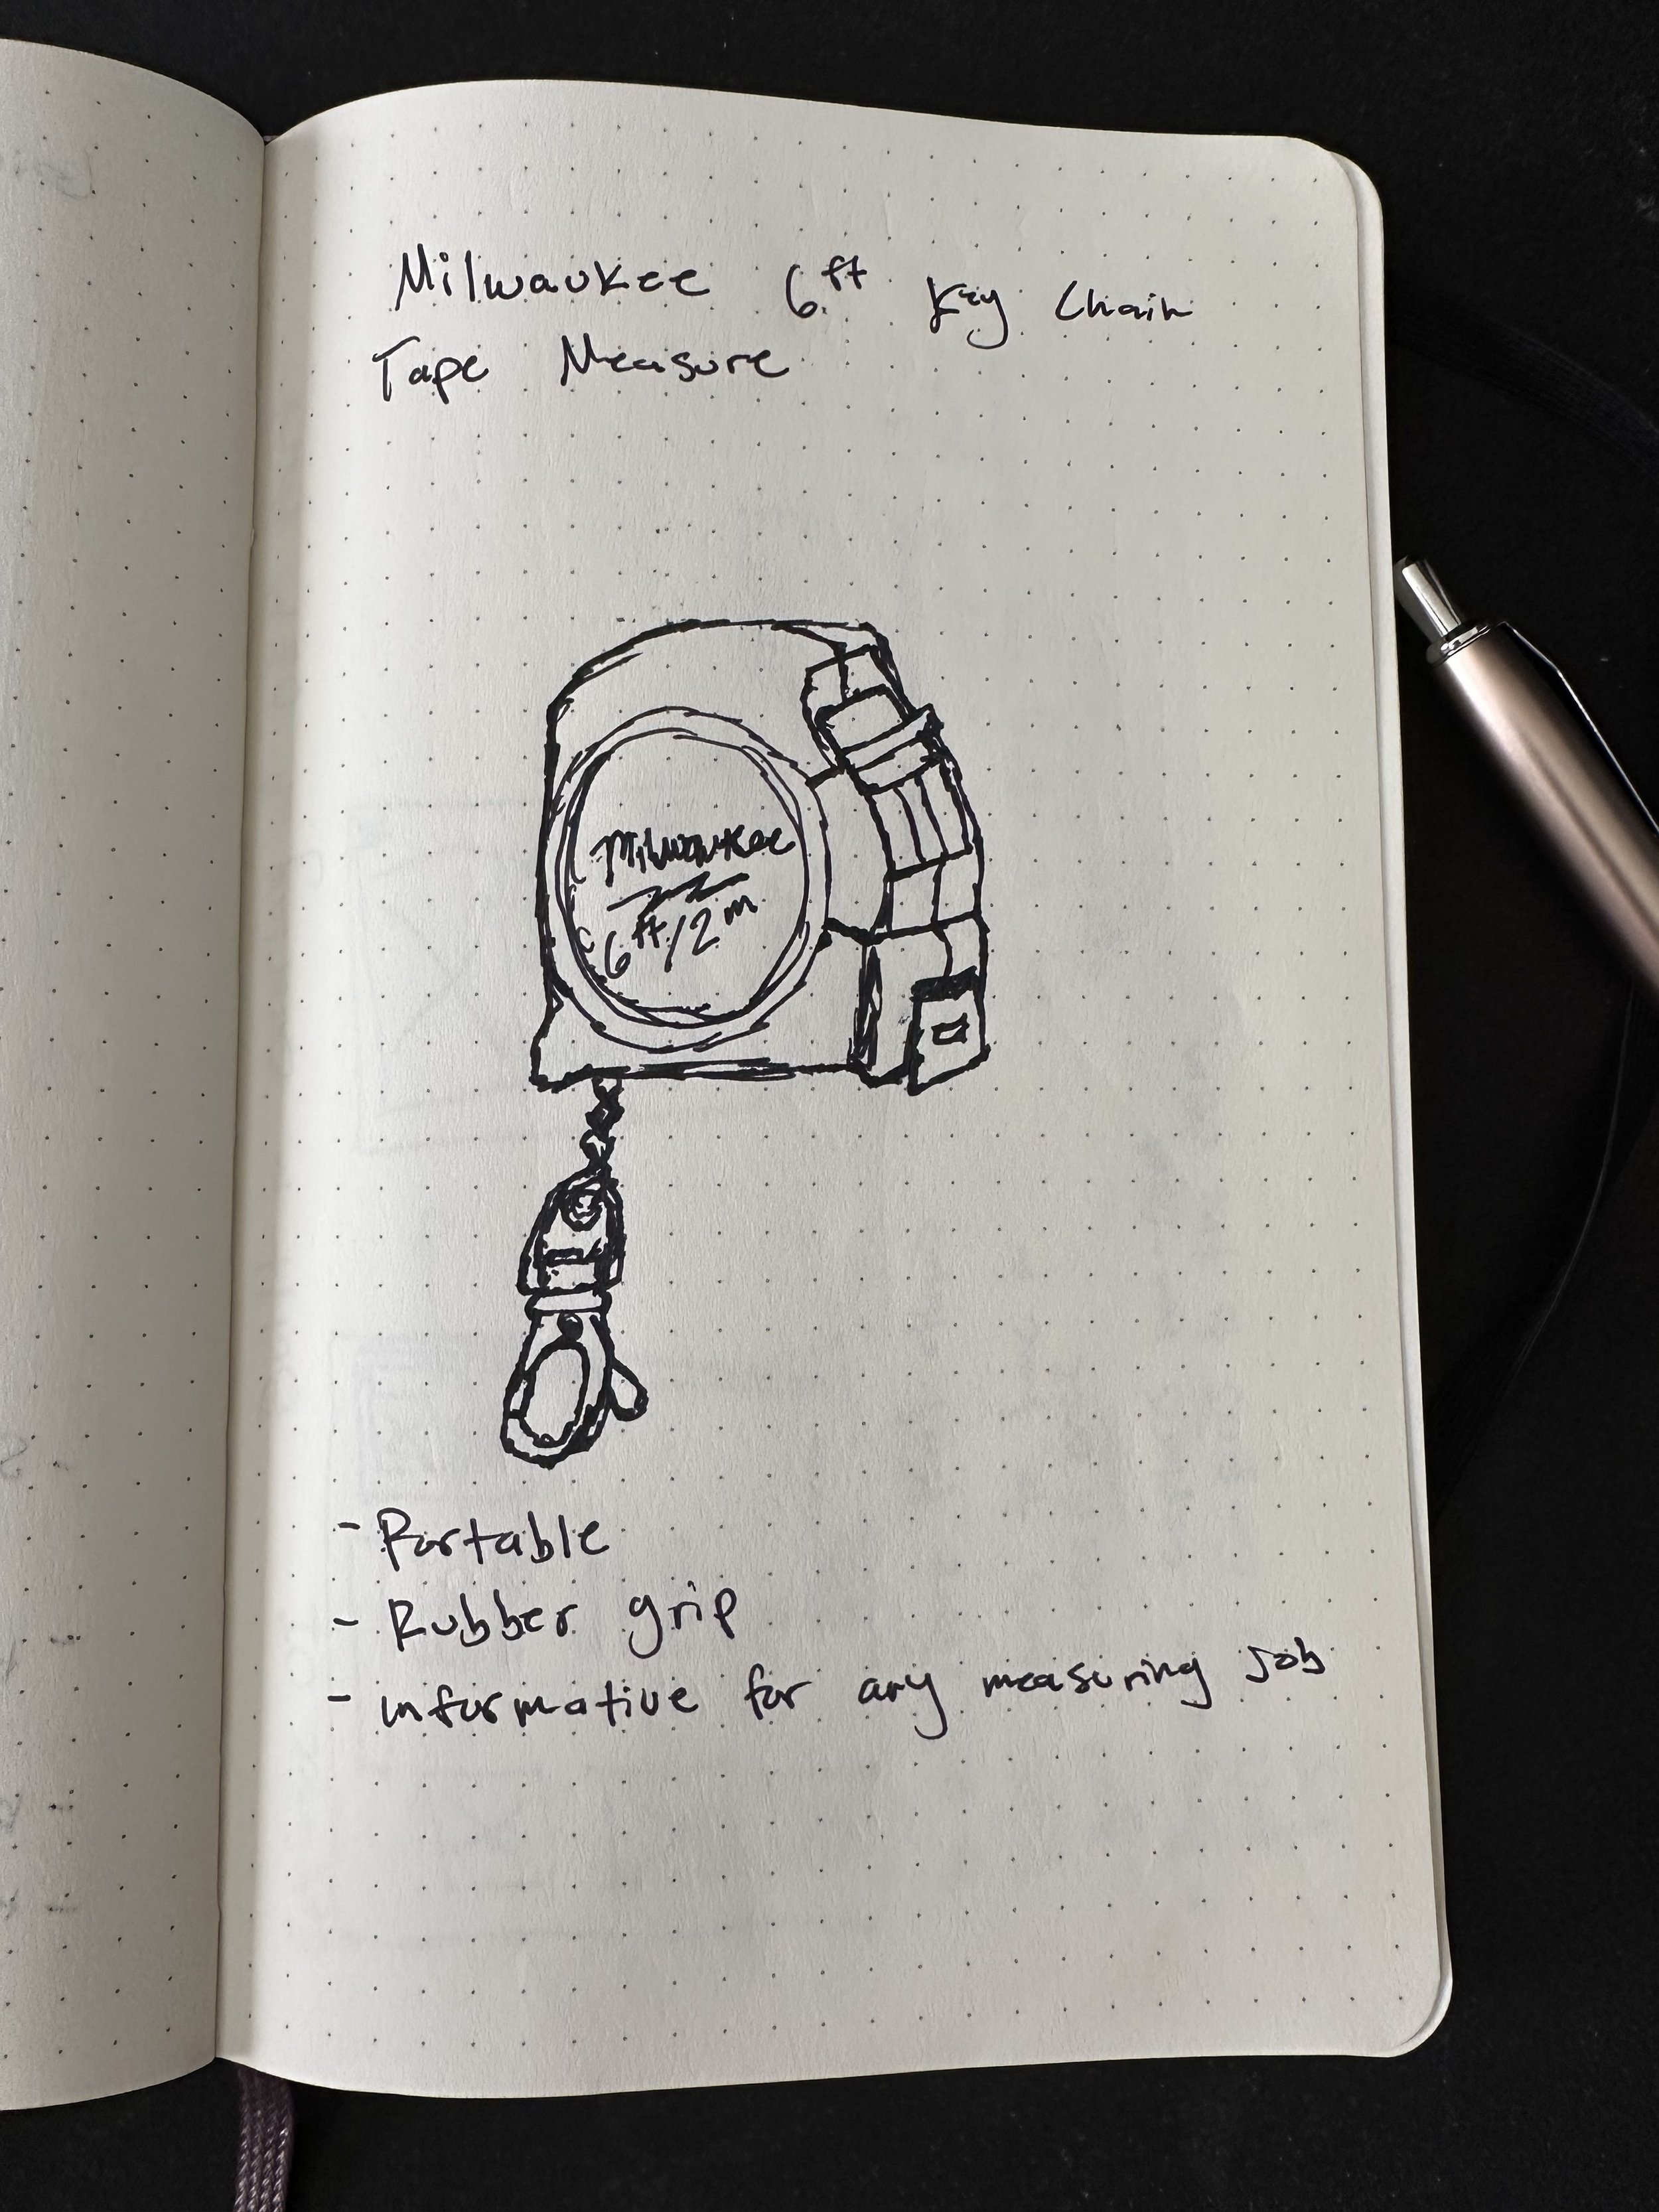 Milwaukee 6ft Key Chain
Tape Measure
Milwaukee
6ft/2m
- Portable
- Rubber grip
- informative for any measuring job